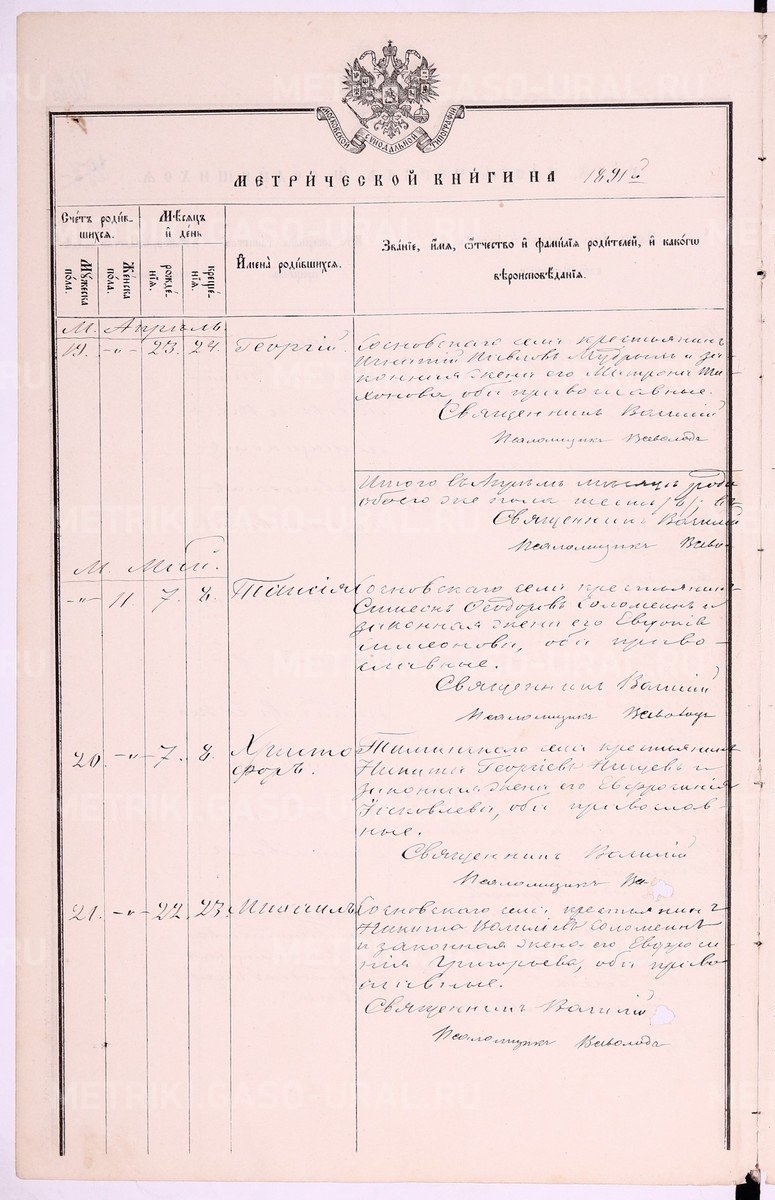 МОСКОВСКОЙ СУНОДАЛЬНОЙ ТИПОГРАФІИ
МЕТРИ́ЧЕСКОЙ КНИ́ГИ НА 1891й
Сче́тъ роди́вшихся.
Мꙋ́жеска по́ла.
Же́нска по́ла.
Мѣ́сяцъ и҆ де́нь
рожде́нїя.
креще́нїя.
И҆мена̀ роди́вшихся.
Зва́нїе, и҆́мя, ѻ҆́тчество и҆ фами́лїя роди́телей, и҆ како́гѡ
вѣроисповѣ́данїя.
М. Апрѣль
19. -"- 23. 24. Георгій. Сосновскаго села крестьянинъ
Игнатій Павловъ Мудрыхъ и за-
конная жена его Матрона Ти-
хонова, оба православные.
Священникъ Василій
Псаломщикъ Всеволодъ
Итого въ Апрѣлѣ мѣсяцѣ роди
обоего же пола шесть
Священникъ Василій
Псаломщикъ Всево-
М. Май.
-"- 11. 7. 8. Таисія Сосновскаго села крестьянинъ
Симеонъ Ѳеодоровъ Соломеинъ и
законная жена его Евдокія
оба право-
славные.
Священникъ Василій
Псаломщикъ Всеволодъ
20. -"- 7. 8. Христо
форъ. села крестьянинъ
Никита Георгіевъ и
законная жена его Евфросинія
Яковлева, оба православ-
ные.
Священникъ Василій
Псаломщикъ Вс
21. -"- 22. 23. Михаилъ Сосновскаго села крестьянинъ
Никита Василіевъ Соломеинъ
и законная жена его Евфроси-
нія Григорьева, оба право
славные.
Священникъ Василій
Псаломщикъ Всеволодъ
METRIKI.GASO-URAL.RU